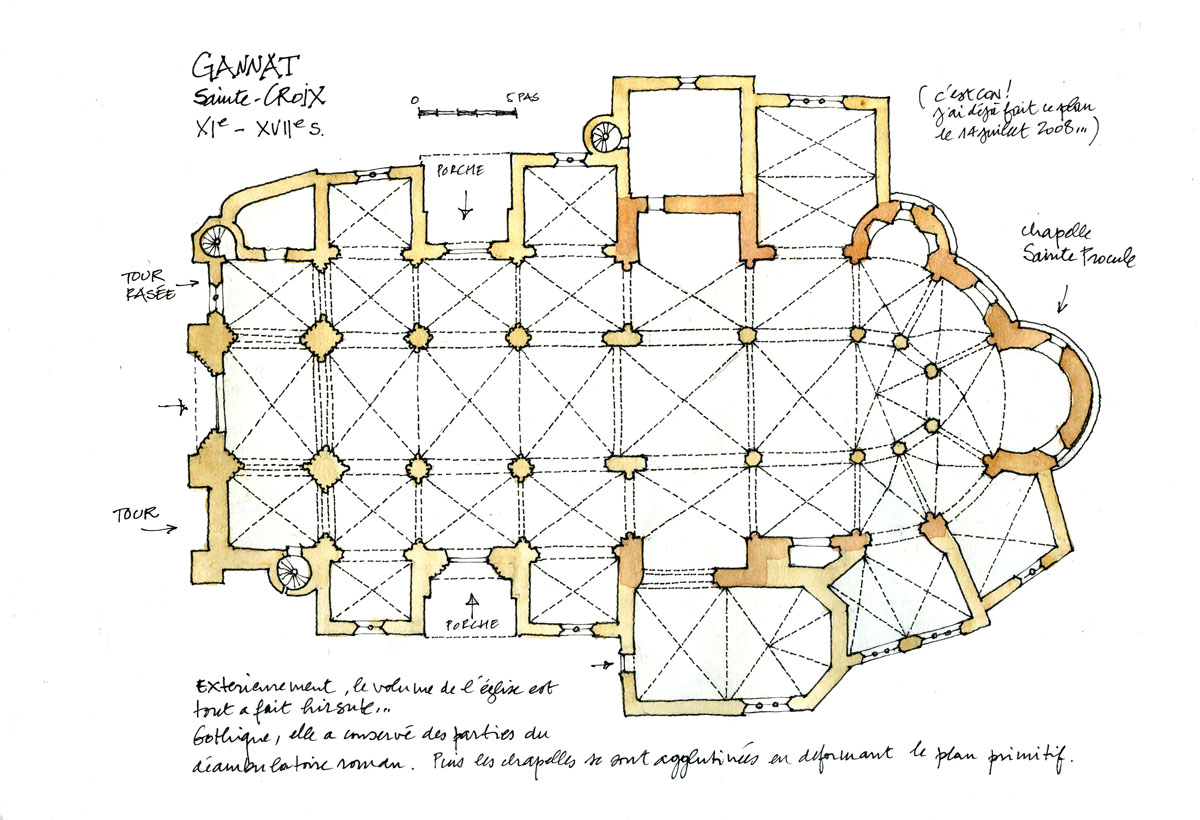 GANNAT
Sainte-CROIX
XIe - XVIIe S.
0 5 PAS
(c'est CON!
j'ai déjà fait ce plan
le 14 juillet 2008...)
PORCHE
chapelle
Sainte Procule
TOUR
RASÉE
TOUR
PORCHE
Extérieurement, le volume de l'église est
tout a fait hirsute...
Gothique, elle a conservé des parties du
déambulatoire roman. Puis les chapelles se sont agglutinées en déformant le plan primitif.